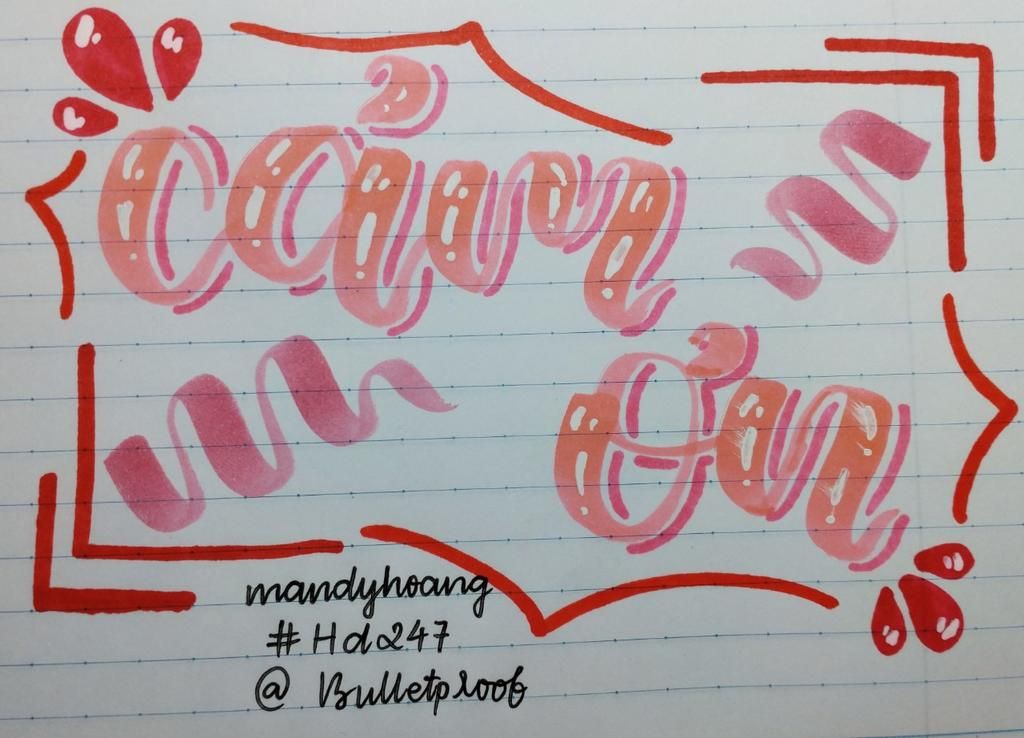 cảm
ơn
mandyhoang
#Hd247
@ Bulletproof